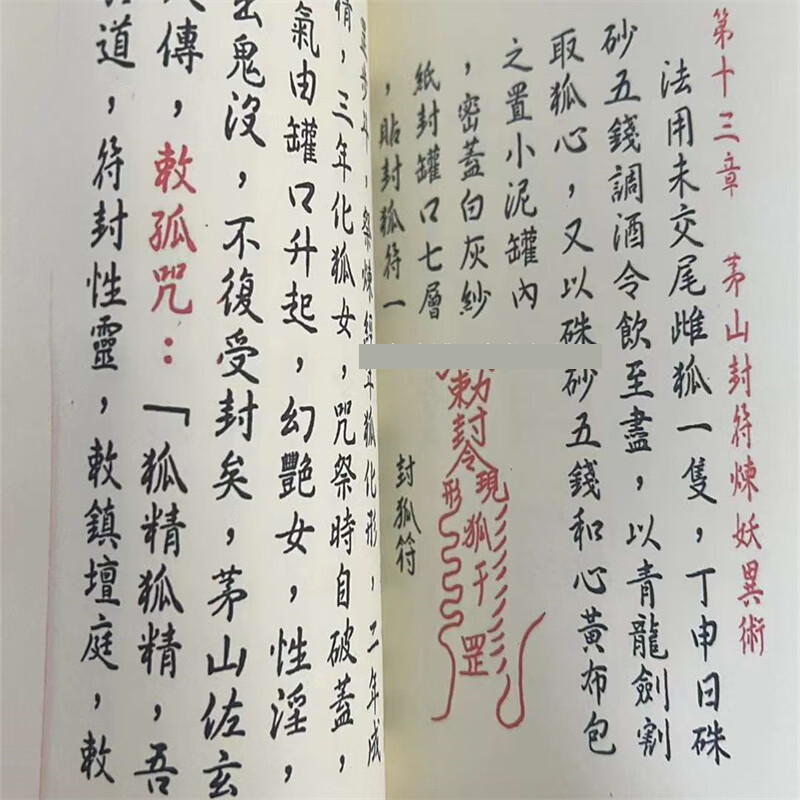 第十三章 茅山封符煉妖異術
法用未交尾雌狐一隻，丁申日硃
砂五錢調酒令飲至盡，以青龍劍割
取狐心，又以硃砂五錢和心黃布包
之置小泥罐內
，密蓋白灰紗
紙封罐口七層
，貼封狐符一
敕封令
形 現
狐干
罡
封狐符
祭煉經年狐化形，二年成
情，三年化狐女，咒祭時自破蓋，
氣由罐口升起，幻艷女，性淫，
出鬼沒，不復受封矣，茅山佐玄
傳，敕孤咒：「狐精狐精，吾
道，符封性靈，敕鎮壇庭，敕